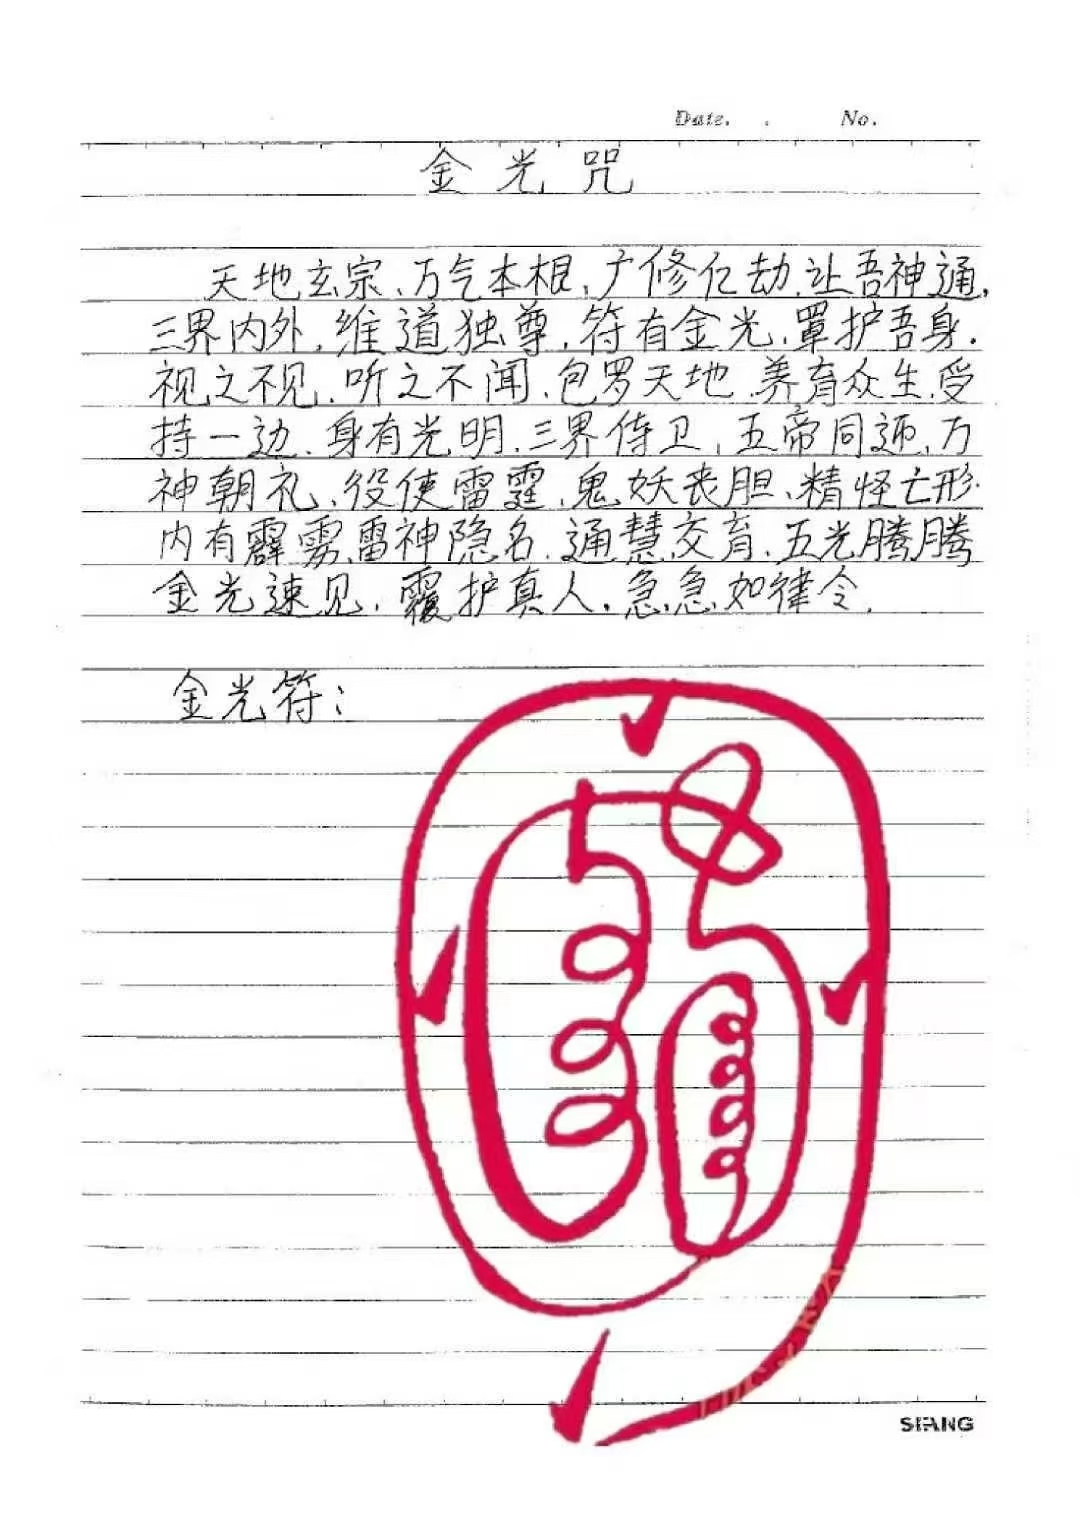 Date. . No.
金光咒
天地玄宗、万气本根、广修亿劫、让吾神通,
三界内外,维道独尊,符有金光,罩护吾身.
视之不见、听之不闻、包罗天地、养育众生、受
持一边、身有光明、三界侍卫,五帝同迊,万
神朝礼、役使雷霆、鬼妖丧胆、精怪亡形.
内有霹雳、雷神隐名、通慧交育、五光腾腾
金光速见,覆护真人.急急如律令.
金光符:
SIANG